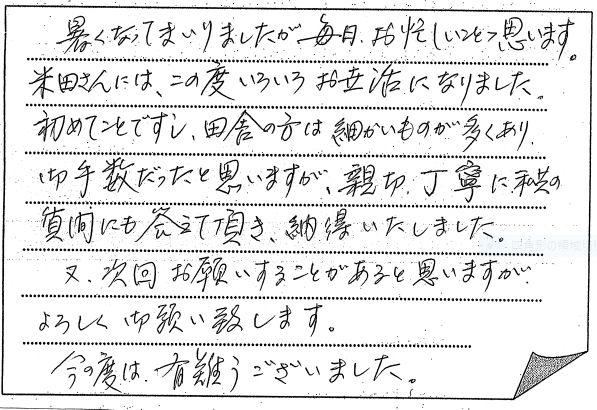 暑くなってまいりましたが毎日、お忙しいことと思います。
米田さんには、この度いろいろお世話になりました。
初めてことですし、田舎の方は細かいものが多くあり、
御手数だったと思いますが、親切、丁寧に私共の
質問にも答えて頂き、納得いたしました。
又、次回お願いすることがあると思いますが、
よろしく御願い致します。
今の度は、有難うございました。